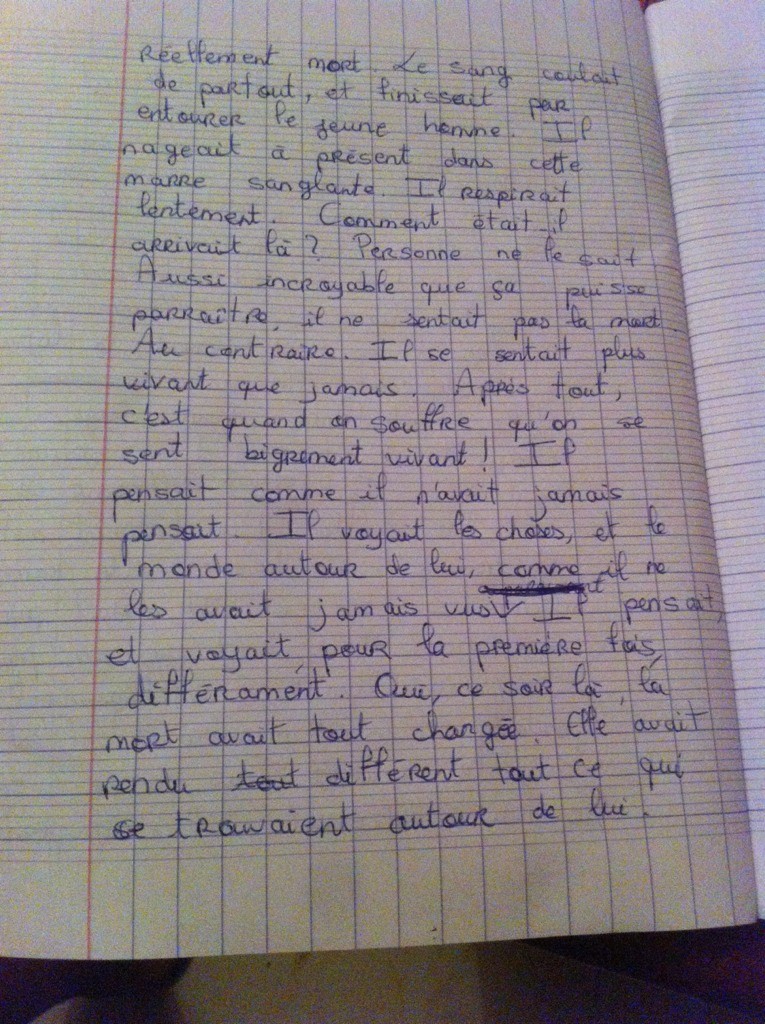 Réellement mort. Le sang coulait
de partout, et finissait par
entourer le jeune homme. Il
nageait à présent dans cette
marre sanglante. Il respirait
lentement. Comment était-il
arrivait là ? Personne ne le sait.
Aussi incroyable que ça puisse
parraître, il ne sentait pas la mort.
Au contraire. Il se sentait plus
vivant que jamais. Après tout,
c'est quand on souffre qu'on se
sent bigrement vivant ! Il
pensait comme il n'avait jamais
pensait. Il voyait les choses, et le
monde autour de lui, comme il ne
les avait jamais vus. Il pensait,
et voyait, pour la première fois,
différament. Oui, ce soir là, la
mort avait tout changée. Elle avait
rendu tout différent tout ce qui
se trouvaient autour de lui.